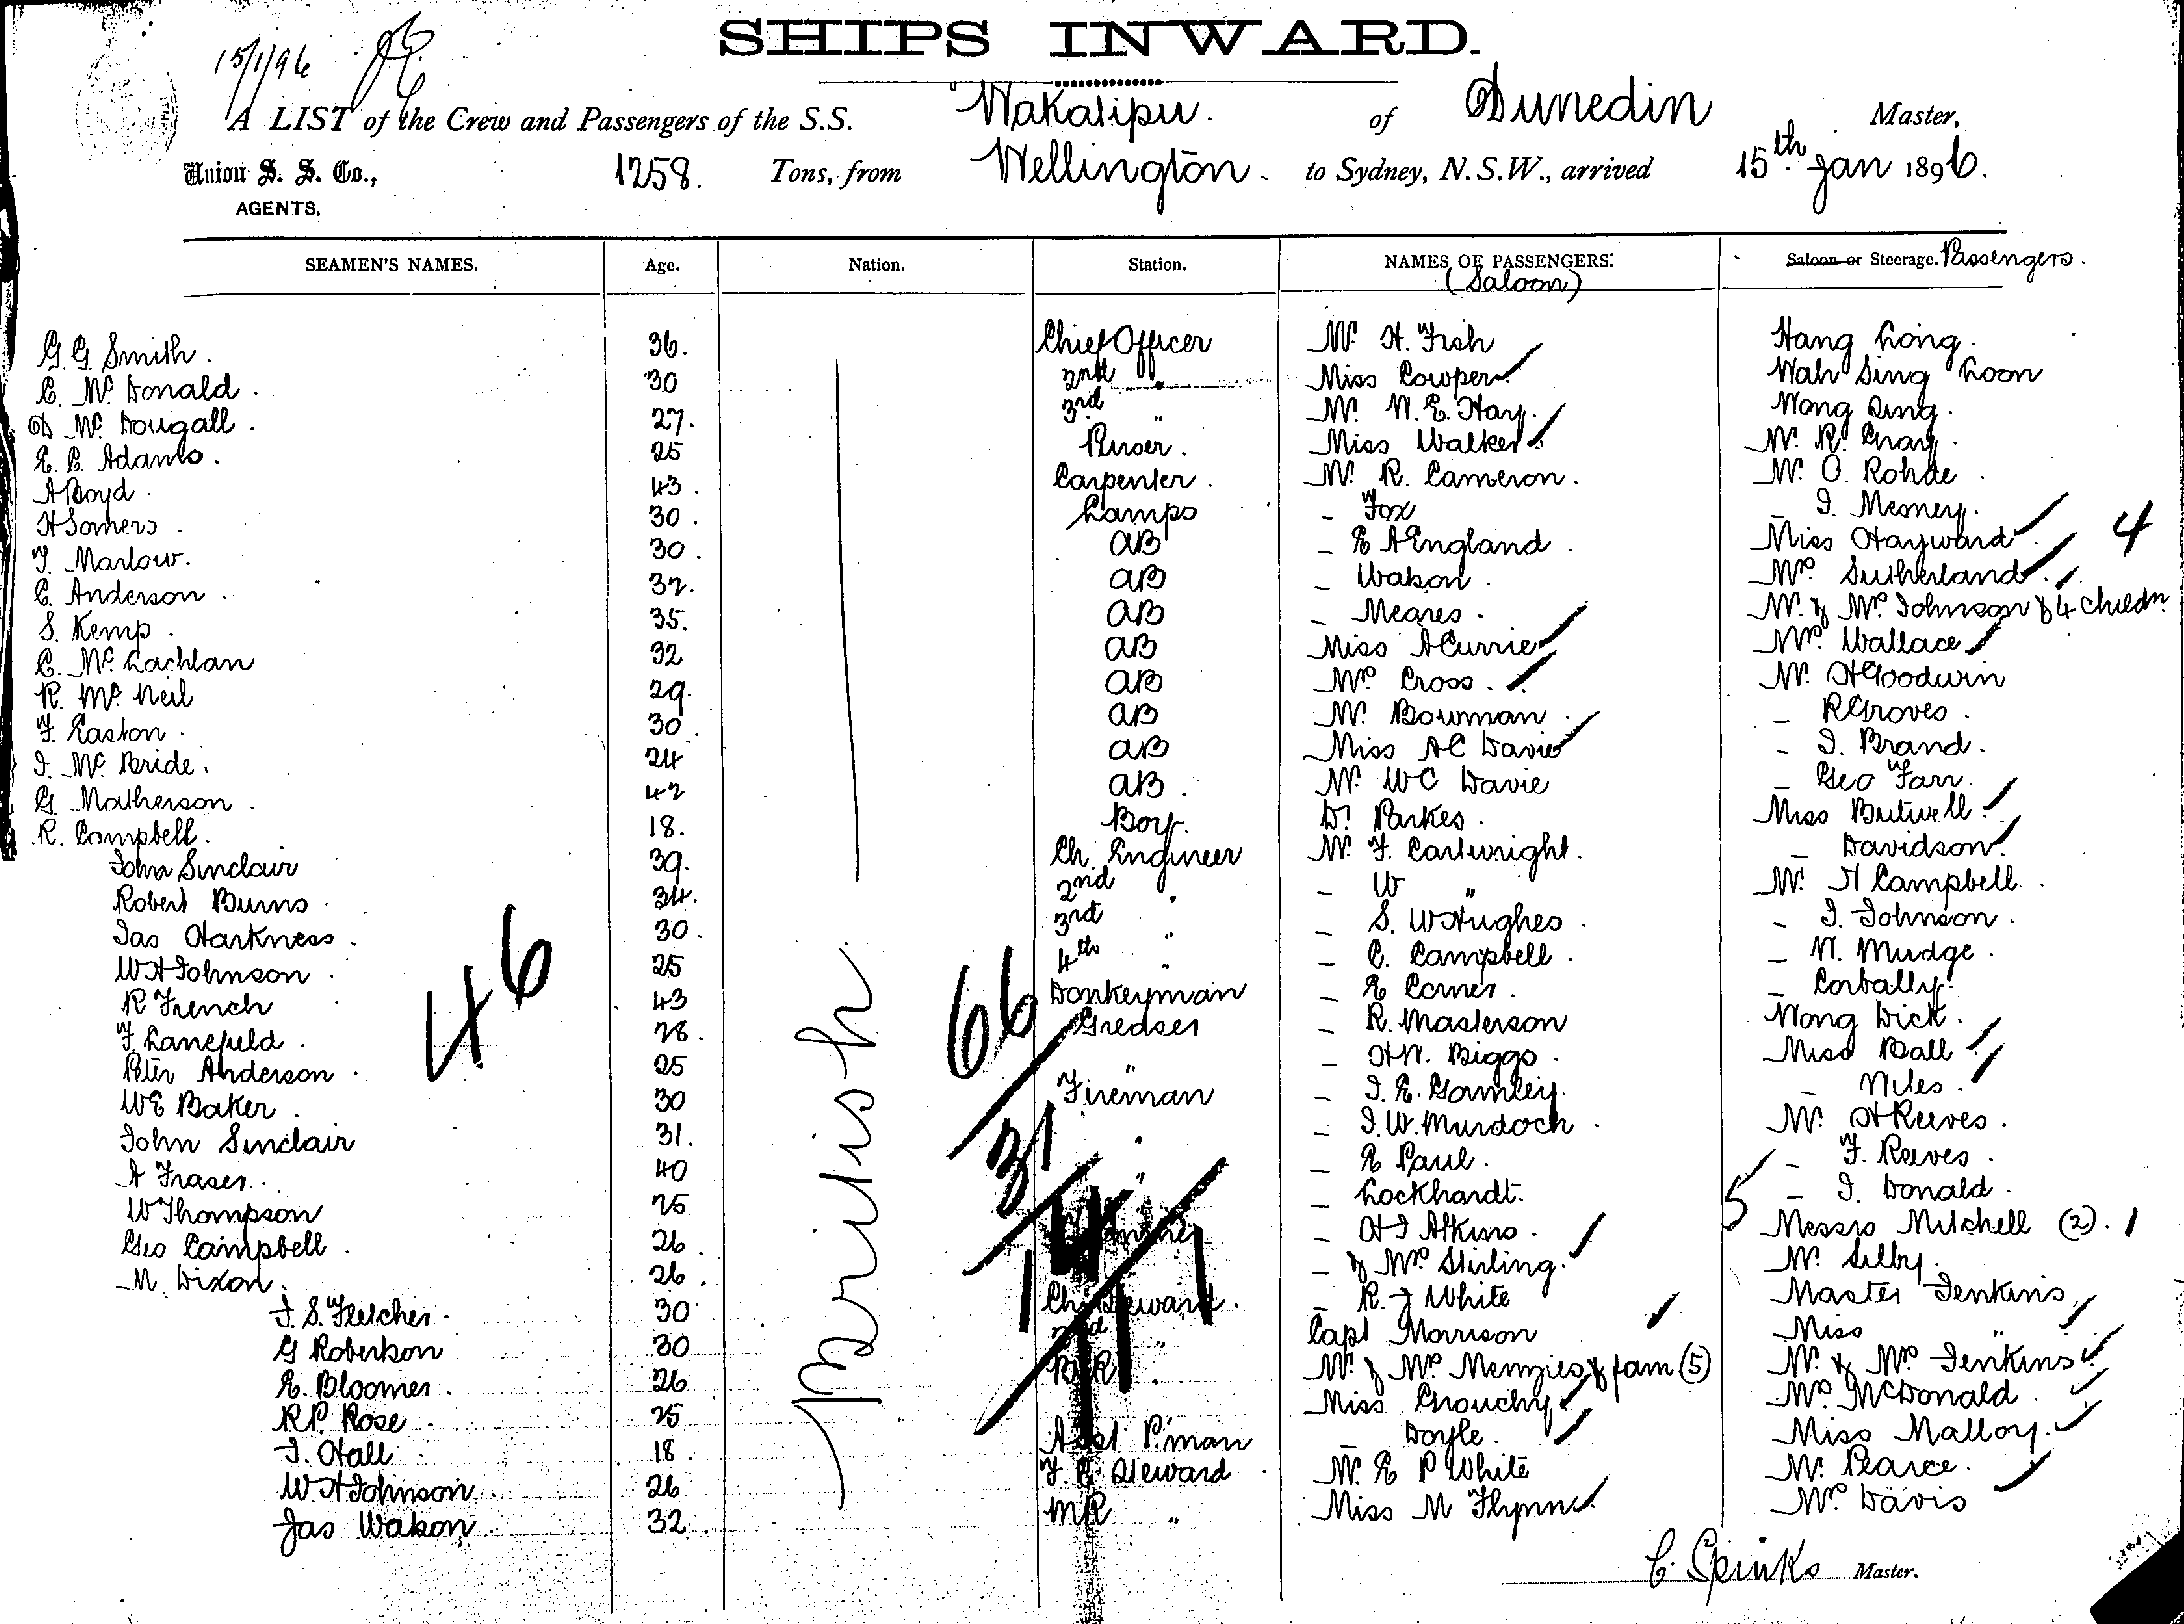 SHIPS INWARD.
15/1/96
A LIST of the Crew and Passengers of the S.S. Wakatipu. of Dunedin Master,
Union S. S. Co., 1258. Tons, from Wellington. to Sydney, N.S.W., arrived 15th Jan 1896.
AGENTS.
SEAMEN'S NAMES. Age. Nation. Station. NAMES OF PASSENGERS. Saloon or Steerage. Passengers.
(Saloon)
G. G. Smith. 36. Chief Officer Mr. H. Fish Hang Long.
C. Mc. Donald. 30 2nd " Miss Cowper Wah Sing Loon
D Mc. Dougall. 27. 3rd " Mr. N. E. Hay. Wong Sing.
E. B. Adams. 25 Purser. Miss Walker. Mr. R. Gray.
A Boyd. 43. Carpenter. Mr. R. Cameron. Mr. O. Rohde.
H Somers. 30. Lamps - Fox - J. Mesney.
T. Marlow. 30. AB - E A England. Miss Hayward. 4
C. Anderson. 32. AB - Watson. Mrs Sutherland.
S. Kemp. 35. AB - Meares. Mr. & Mrs Johnson & 4 childn
C. Mc. Lachlan 32 AB Miss A Currie Mrs Wallace
R. Mc. Neil 29. AB Mrs Cross. Mr. H Goodwin
F. Easton. 30. AB Mr. Bowman. - R Groves.
J. Mc. Bride. 24 AB Miss A C Davie - J. Brand.
G. Matherson. 42 AB. Mr. W C Davie - Geo Farr.
R. Campbell. 18. Boy. Dr. Parkes. Miss Butwell.
John Sinclair 39. Ch. Engineer Mr. F. Cartwright. - Davidson.
Robert Burns. 34. 2nd " - W " Mr. H Campbell.
Jas Harkness. 30. 3rd " - S. W Hughes. - J. Johnson.
W A Johnson. 25 4th " - C. Campbell. - N. Mudge.
R French 43 Donkeyman - E Corner. - Corbally.
F. Lanefield. 28. Greaser - R. Masterson Wong Dick.
Peter Anderson. 25 " - H N. Biggs. Miss Ball
W E Baker. 30 Fireman - J. E. Gamley. - Niles.
John Sinclair 31. " - J. W. Murdoch. Mr. H Reeves.
A Fraser. 40 " - E Paul. - F. Reeves.
W Thompson 25 - Lockhardt. 5 - J. Donald.
Geo Campbell. 26. - H J Atkins. Messrs Mitchell (2).
M. Dixon. 26. - & Mrs Stirling. Mr. Silby.
J. S. Fletcher. 30 Ch. Steward. - R. J White Master Jenkins
G Robertson 30 2nd " Capt Morrison Miss "
E. Bloomer. 26 Mr. & Mrs Menzies & fam (5) Mr. & Mrs Jenkins
R P. Rose 25 Miss Chouchy Mrs McDonald
J. Hall 18 Asst P.man - Doyle. Miss Mallory.
W. A Johnson 26 F. C. Steward Mr. E P White Mr. Pearce.
Jas Watson. 32 MR " Miss M Flynn Mrs Davis
46
British
66
31
C. Spinks Master.